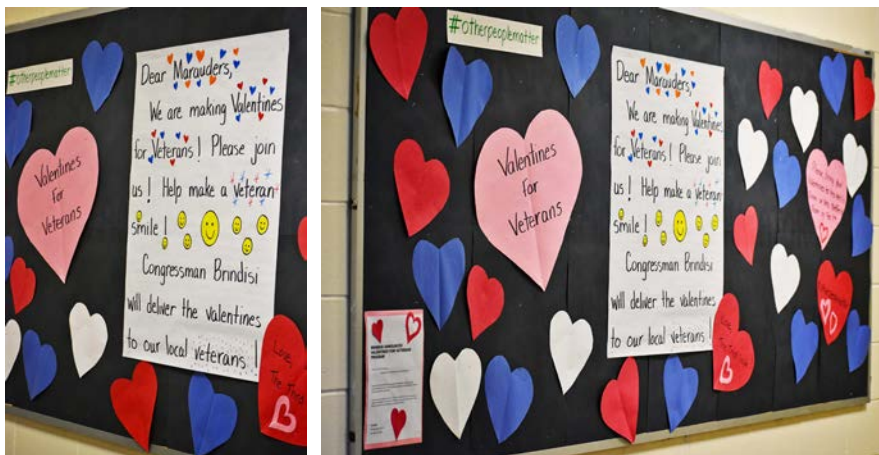 #otherpeoplematter
Valentines
For
Veterans
Dear Marauders,
We are making Valentines
for Veterans! Please join
us! Help make a veteran
smile!
Congressman Brindisi
will deliver the valentines
to our local veterans!
Love,
#otherpeoplematter
Valentines
For
Veterans
Dear Marauders,
We are making Valentines
for Veterans! Please join
us! Help make a veteran
smile!
Congressman Brindisi
will deliver the valentines
to our local veterans!
Love,
VALENTINES FOR VETERANS
PROGRAM